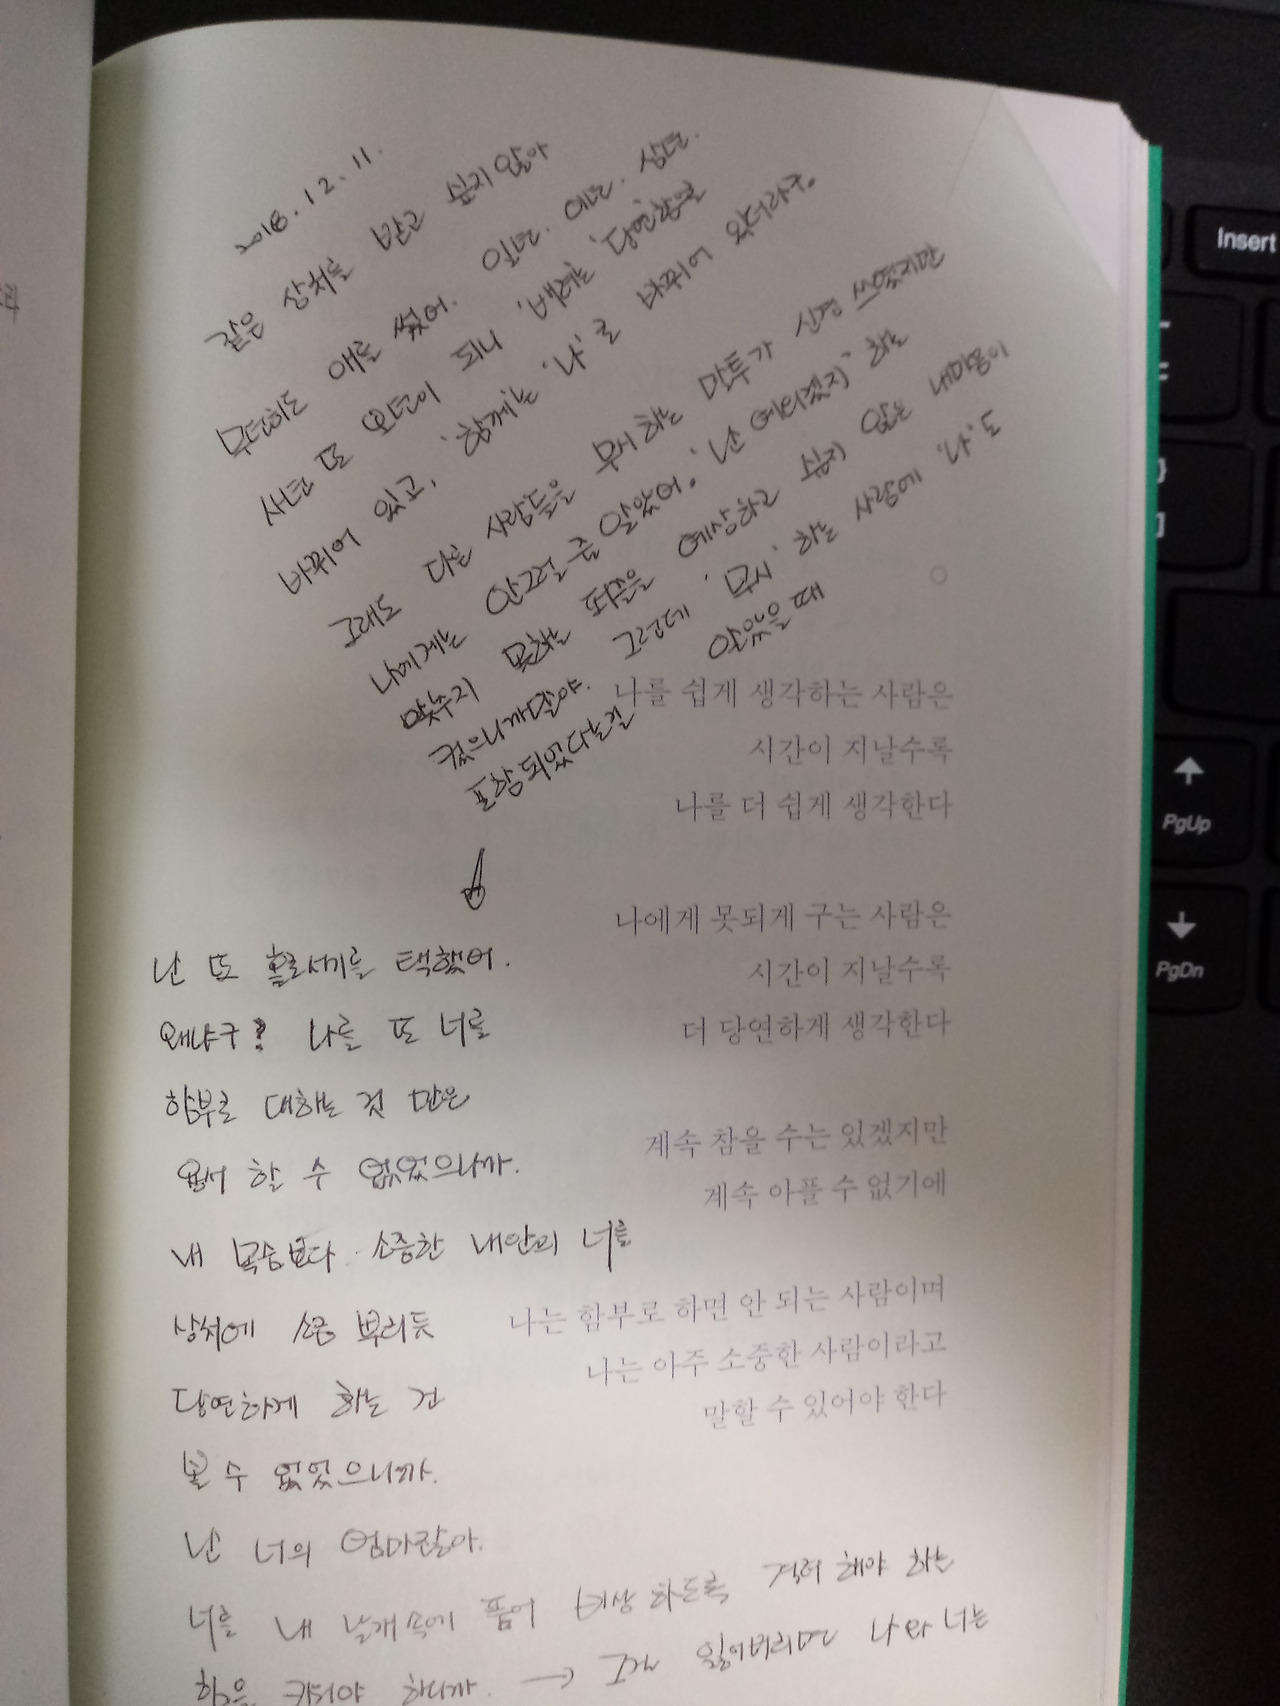 2018. 12. 11.
같은 상처를 받고 싶지않아
무던히도 애를 썼어. 일년. 이년. 삼년.
사년 또 오년이 되니 '배려'는 '당연함'으로
바뀌어 있고, '함께'는 '나'로 바뀌어 있더라구.
그래도 다른 사람들을 무시하는 말투가 신경 쓰였지만
나에게는 안그럴줄 알았어. '난 예외겠지' 하는
맞추지 못하는 퍼즐은 예상하고 싶지 않은 내마음이
컸으니까말야. 그런데 '무시' 하는 사람에 '나'도
포함되었다는걸 알았을 때
나를 쉽게 생각하는 사람은
시간이 지날수록
나를 더 쉽게 생각한다
나에게 못되게 구는 사람은
시간이 지날수록
더 당연하게 생각한다
계속 참을 수는 있겠지만
계속 아플 수 없기에
나는 함부로 하면 안 되는 사람이며
나는 아주 소중한 사람이라고
말할 수 있어야 한다
난 또 홀로서기를 택했어.
왜냐구? 나를 또 너를
함부로 대하는 것 만은
용서 할 수 없었으니까.
내 목숨보다 소중한 내안의 너를
상처에 소금 뿌리듯
당연하게 하는 건
볼 수 없었으니까.
난 너의 엄마잖아.
너를 내 날개속에 품어 비상 하도록 격려 해야 하는
힘을 키워야 하니까. → 그걸 잃어버리면 나와 너는
Insert
PgUp
PgDn